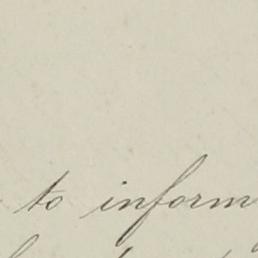 to inform